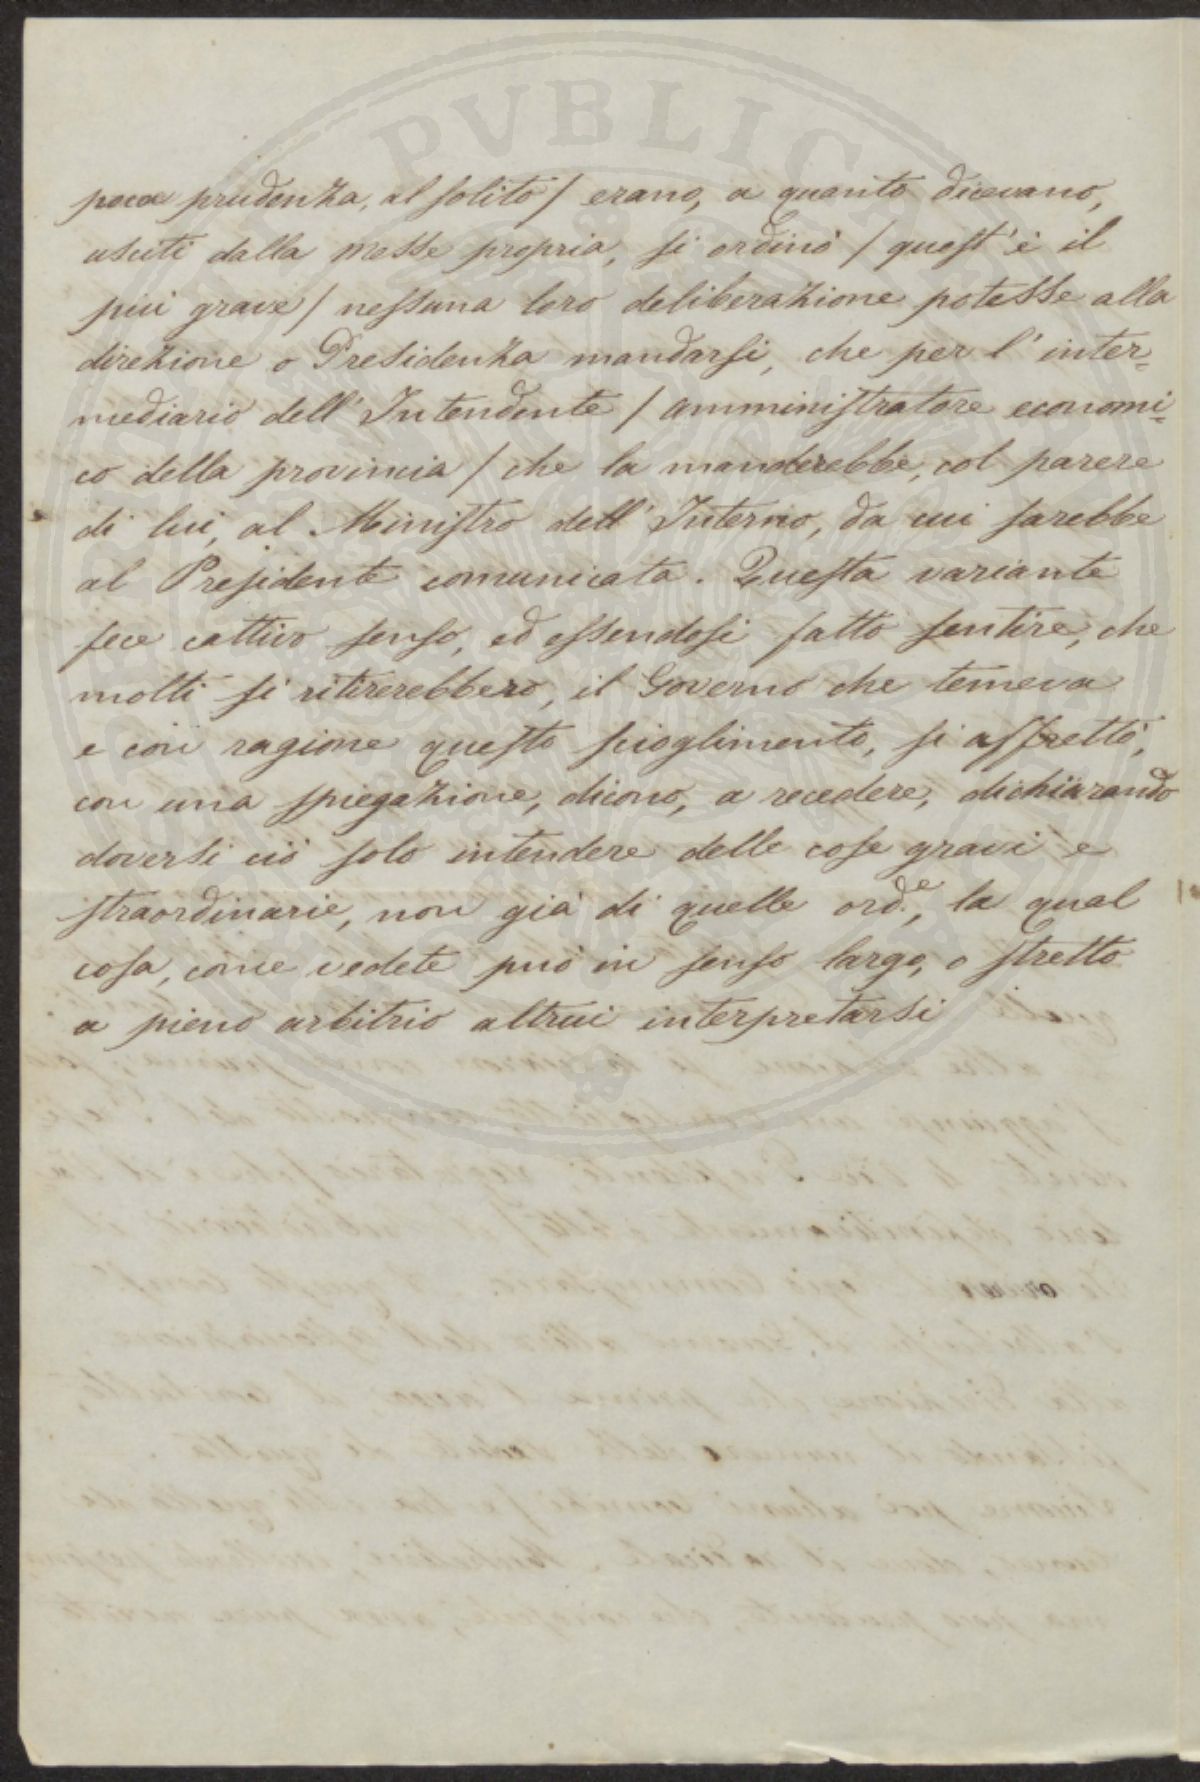 PVBLICA
poca prudenza, al solito / erano, a quanto dicevano,
usciti dalla messe propria, si ordinò / quest'è il
più grave / nessuna loro deliberazione potesse alla
direzione o Presidenza mandarsi, che per l'inter-
mediario dell'Intendente / amministratore economi-
co della provincia / che la manderebbe, col parere
di lui, al Ministro dell'Interno, da cui sarebbe
al Presidente comunicata. Questa variante
fece cattivo senso, ed essendosi fatto sentire, che
molti si ritirerebbero, il Governo che temeva
e con ragione questo scioglimento, si affrettò,
con una spiegazione, dicono, a recedere, dichiarando
doversi ciò solo intendere delle cose gravi e
straordinarie, non già di quelle ord.e, la qual
cosa, come vedete può in senso largo, o stretto
a pieno arbitrio altrui interpretarsi